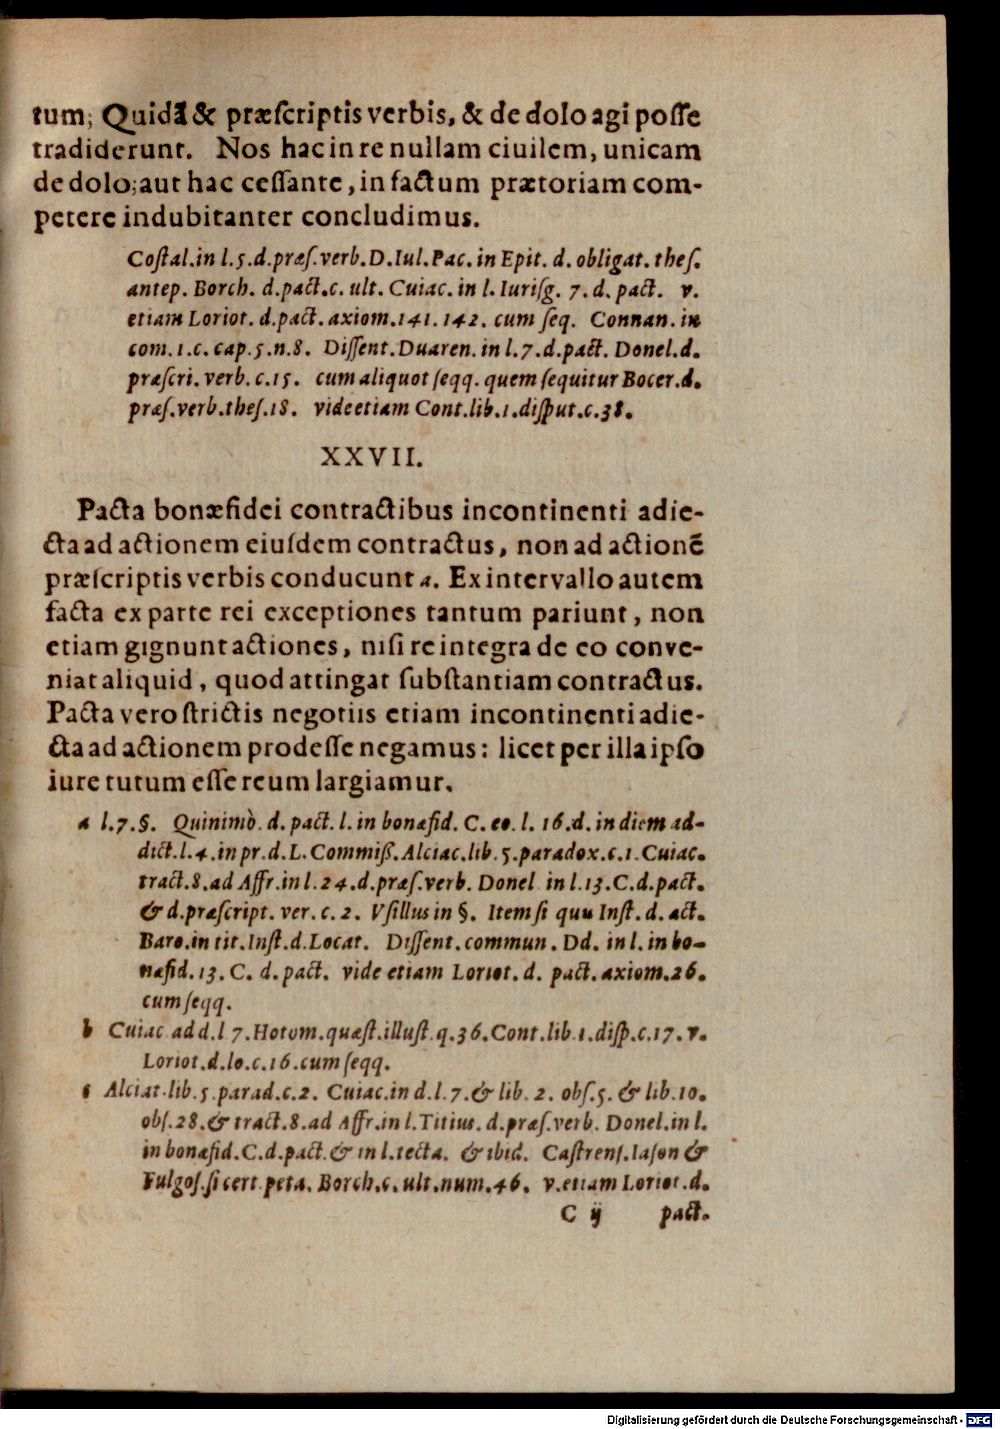 tum; Quidã & præſcriptis verbis, & de dolo agi poſſe
tradiderunt. Nos hac in re nullam ciuilem, unicam
de dolo; aut hac ceſſante, in factum prætoriam com-
petere indubitanter concludimus.
Coſtal. in l. 5. d. præſ. verb. D. Iul. Pac. in Epit. d. obligat. theſ.
antep. Borch. d. pact. c. ult. Cuiac. in l. Iuriſg. 7. d. pact. v.
etiam Loriot. d. pact. axiom. 141. 142. cum ſeq. Connan. in
com. 1. c. cap. 5. n. 8. Diſſent. Duaren. in l. 7. d. pact. Donel. d.
præſcri. verb. c. 15. cum aliquot ſeqq. quem ſequitur Bocer. d.
præſ. verb. theſ. 18. vide etiam Cont. lib. 1. diſput. c. 38.
XXVII.
Pacta bonæfidei contractibus incontinenti adie-
cta ad actionem eiuſdem contractus, non ad actionẽ
præſcriptis verbis conducunt a. Ex intervallo autem
facta ex parte rei exceptiones tantum pariunt, non
etiam gignunt actiones, niſi re integra de eo conve-
niat aliquid, quod attingat ſubſtantiam contractus.
Pacta vero ſtrictis negotiis etiam incontinenti adie-
cta ad actionem prodeſſe negamus: licet per illa ipſo
iure tutum eſſe reum largiamur.
a l. 7. §. Quinimò. d. pact. l. in bonæfid. C. eo. l. 16. d. in diem ad-
dict. l. 4. in pr. d. L. Commiß. Alciac. lib. 5. paradox. c. 1. Cuiac.
tract. 8. ad Affr. in l. 24. d. præſ. verb. Donel in l. 13. C. d. pact.
& d. præſcript. ver. c. 2. Vſillus in §. Item ſi quis Inſt. d. act.
Baro. in tit. Inſt. d. Locat. Diſſent. commun. Dd. in l. in bo-
næfid. 13. C. d. pact. vide etiam Loriot. d. pact. axiom. 26.
cum ſeqq.
b Cuiac ad d. l 7. Hotom. quæſt. illuſt. q. 36. Cont. lib. 1. diſp. c. 17. v.
Loriot. d. lo. c. 16. cum ſeqq.
c Alciat. lib. 5. parad. c. 2. Cuiac. in d. l. 7. & lib. 2. obſ. 5. & lib. 10.
obſ. 28. & tract. 8. ad Affr. in l. Titius. d. præſ. verb. Donel. in l.
in bonæfid. C. d. pact. & in l. tecta. & ibid. Caſtrenſ. Iaſon &
Fulgoſ. ſi cert. peta. Borch. c. ult. num. 46. v. etiam Loriot. d.
C ij pact.
Digitalisierung gefördert durch die Deutsche Forschungsgemeinschaft - DFG